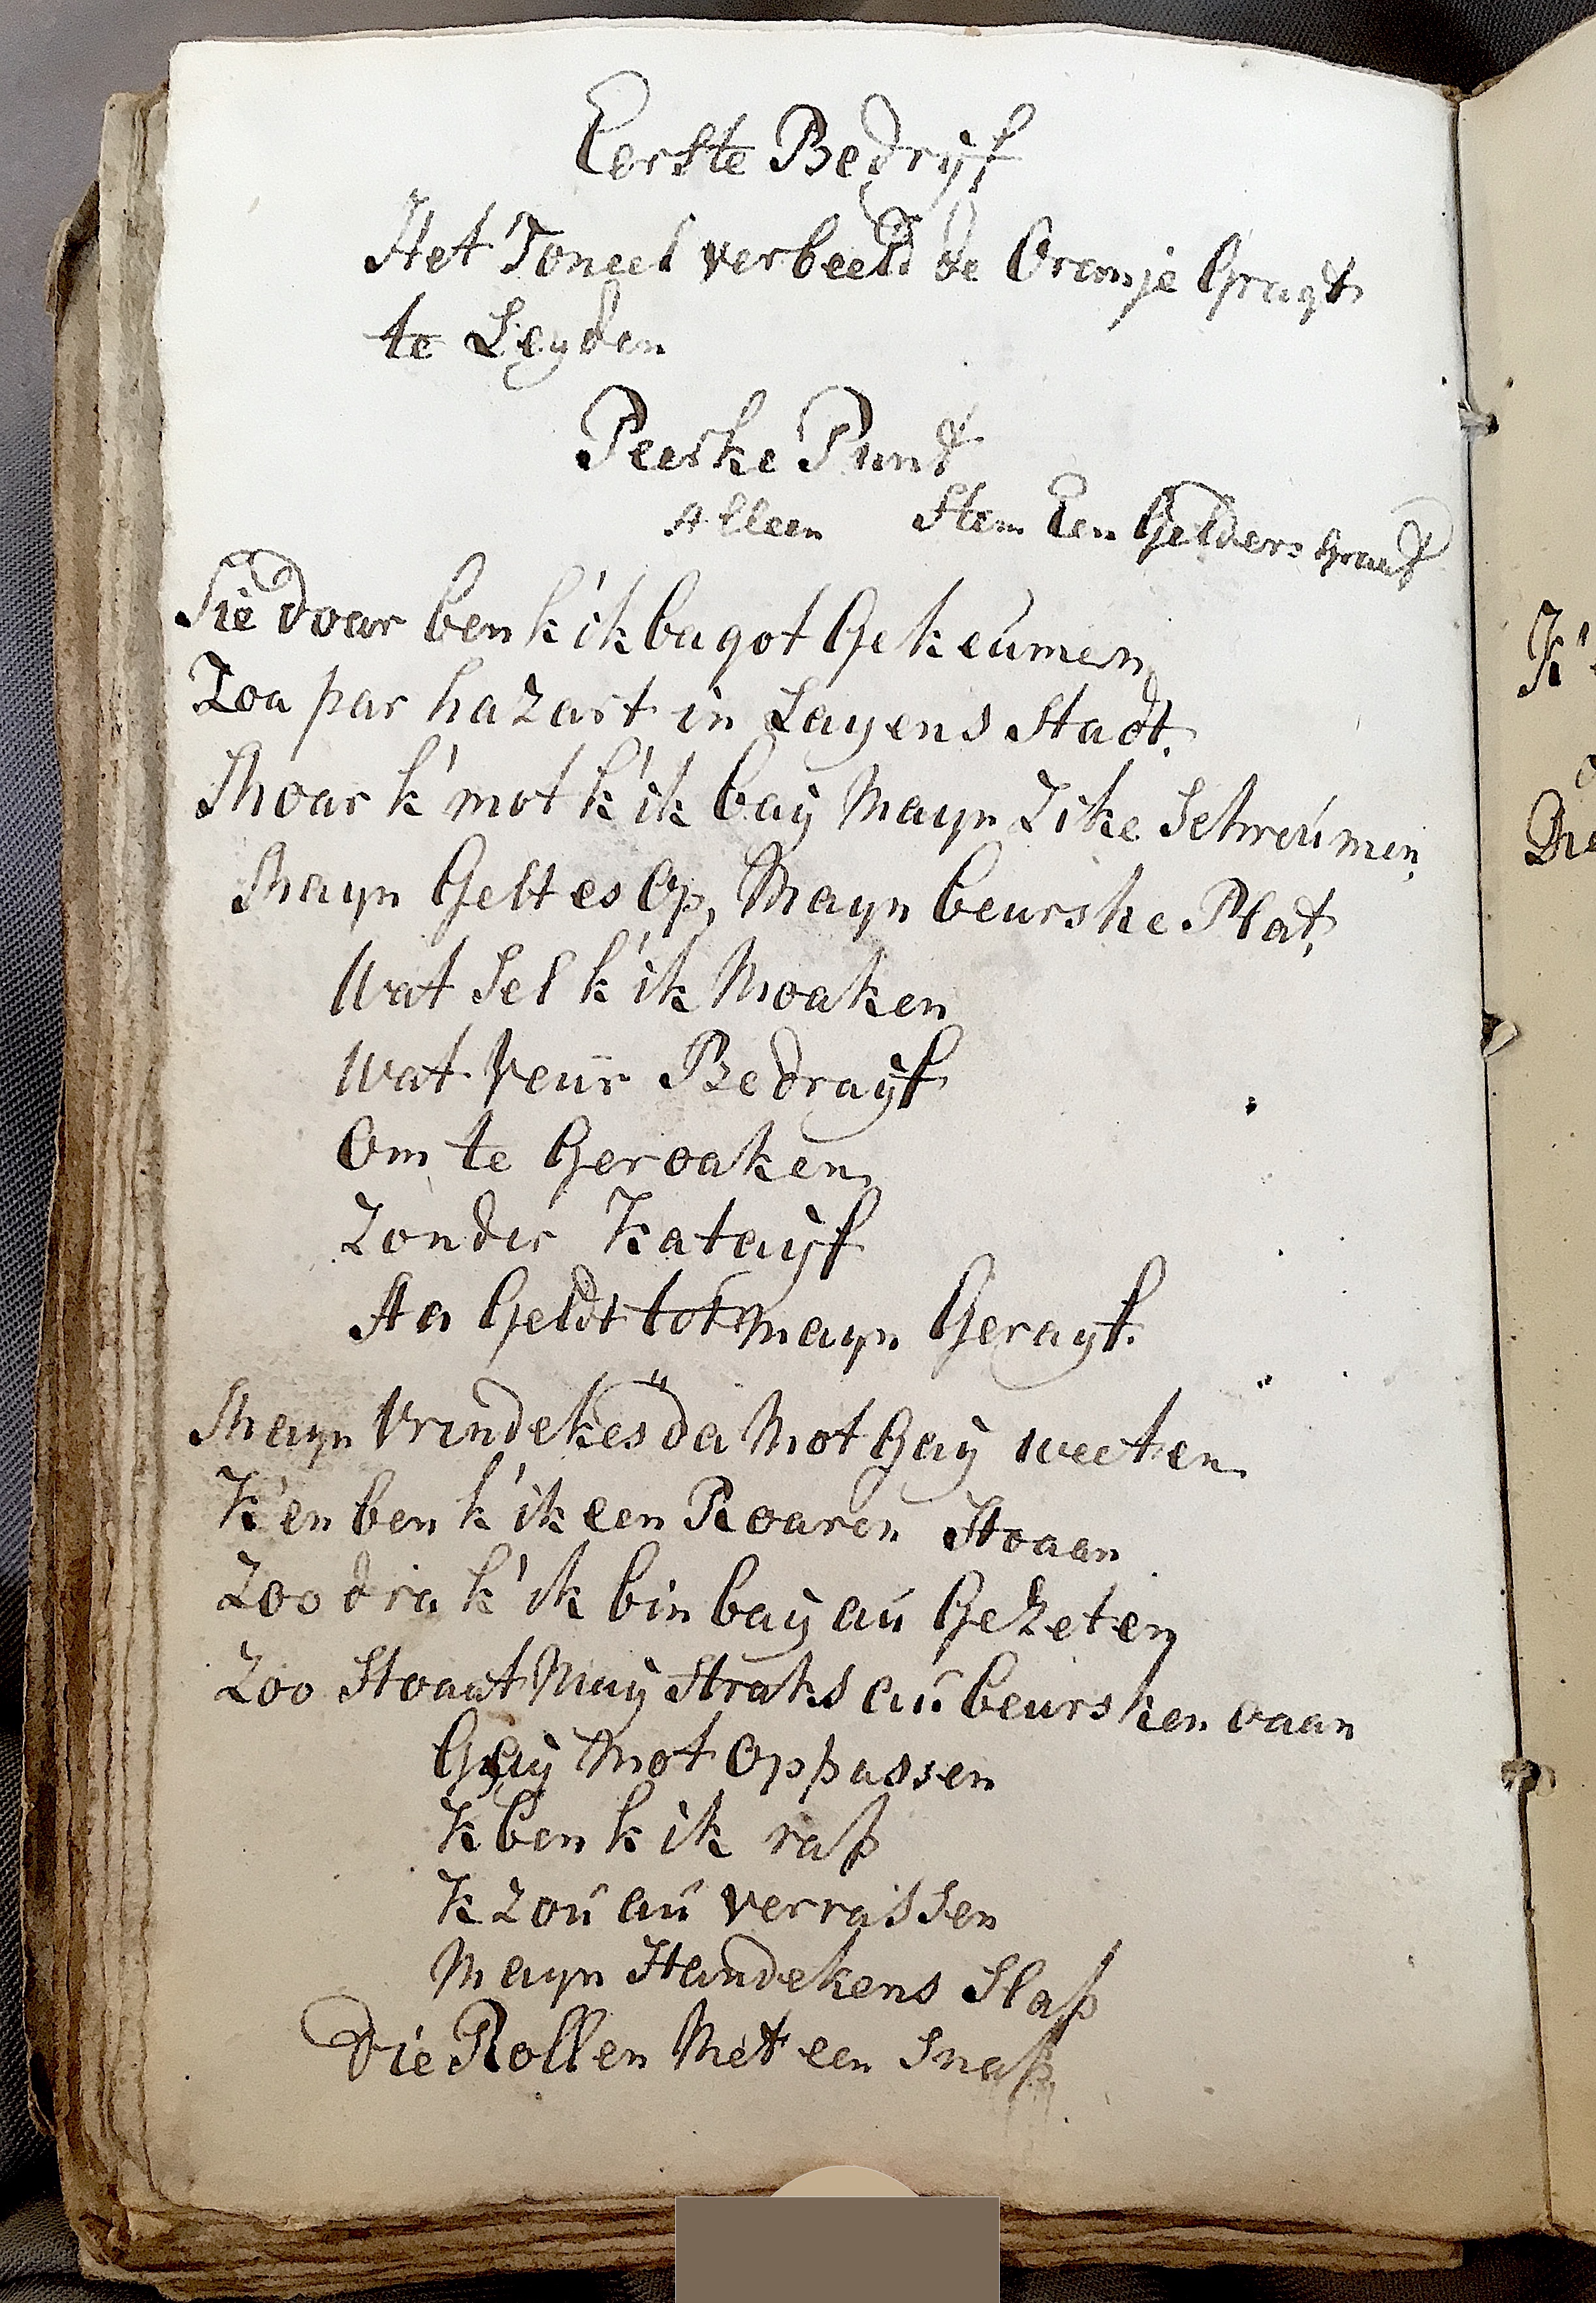 Eerste Bedrijf
Het Toneel verbeeld de Oranje Gragt
te Leyden
Peerke Punt
Alleen Stem Een Gelders Graaf
Sie doar ben k'ik bagot Gekeúmen
Zoa par hazart in Layens Stadt.
Moar k'mot k'ik baÿ Mayn Zike Schreúmen
Mayn Gelt es Op, Mayn beurske Plat,
Wat Sel k'ik Moaken
Wat Veur Bedraÿf
Om te Geroaken
Zonder Kataÿf
Aa Geldt tot mayn Gerayf.
Mayn Vrindekes da Mot Gaÿ weeten
K'en ben k'ik een Roaren Hoaan
Zoo dra k'ik bin baÿ aú Gezeten
Zoo Stoaat Maÿ Straks aú beursken oaan
Gaÿ Mot Oppassen
K ben k ik rap
K zoú aú verrassen
Mayn Handekens Slap
Die Rollen Met een Snap
K'
Die